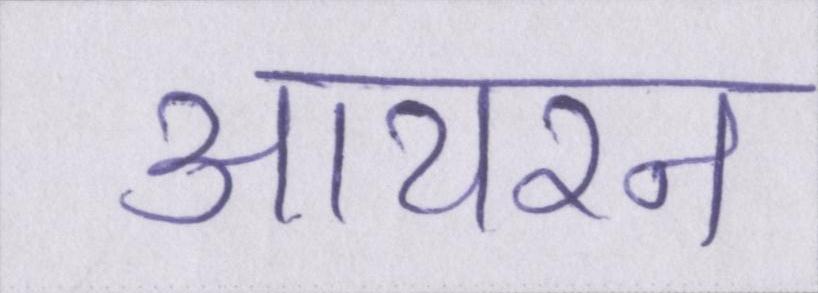 आयरन